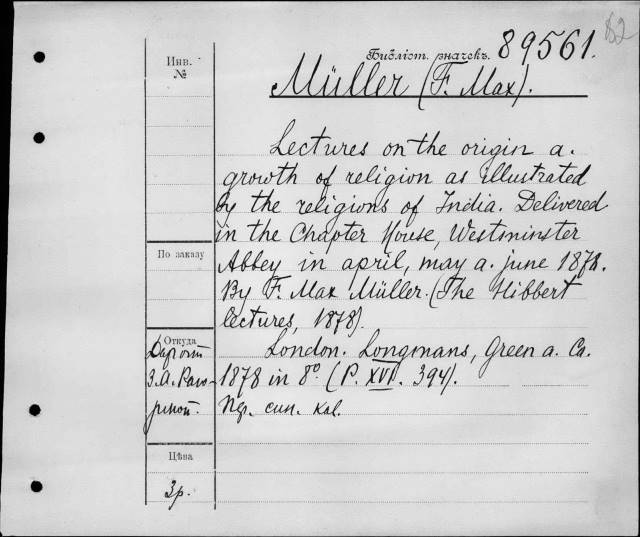 82
Библіот. значекъ. 89561.
Инв. №
Müller (F. Max).
Lectures on the origin a.
growth of religion as illustrated
by the religions of India. Delivered
in the Chapter House, Westminster
По заказу
Abbey in april, may a. june 1878.
By F. Max Müller. (The Hibbert
lectures, 1878).
Откуда
Даръ отъ
London. Longmans, Green a. Co.
З. А. Раго-
1878 in 8° (P. XVI. 394).
зиной.
Цѣна
3 р.